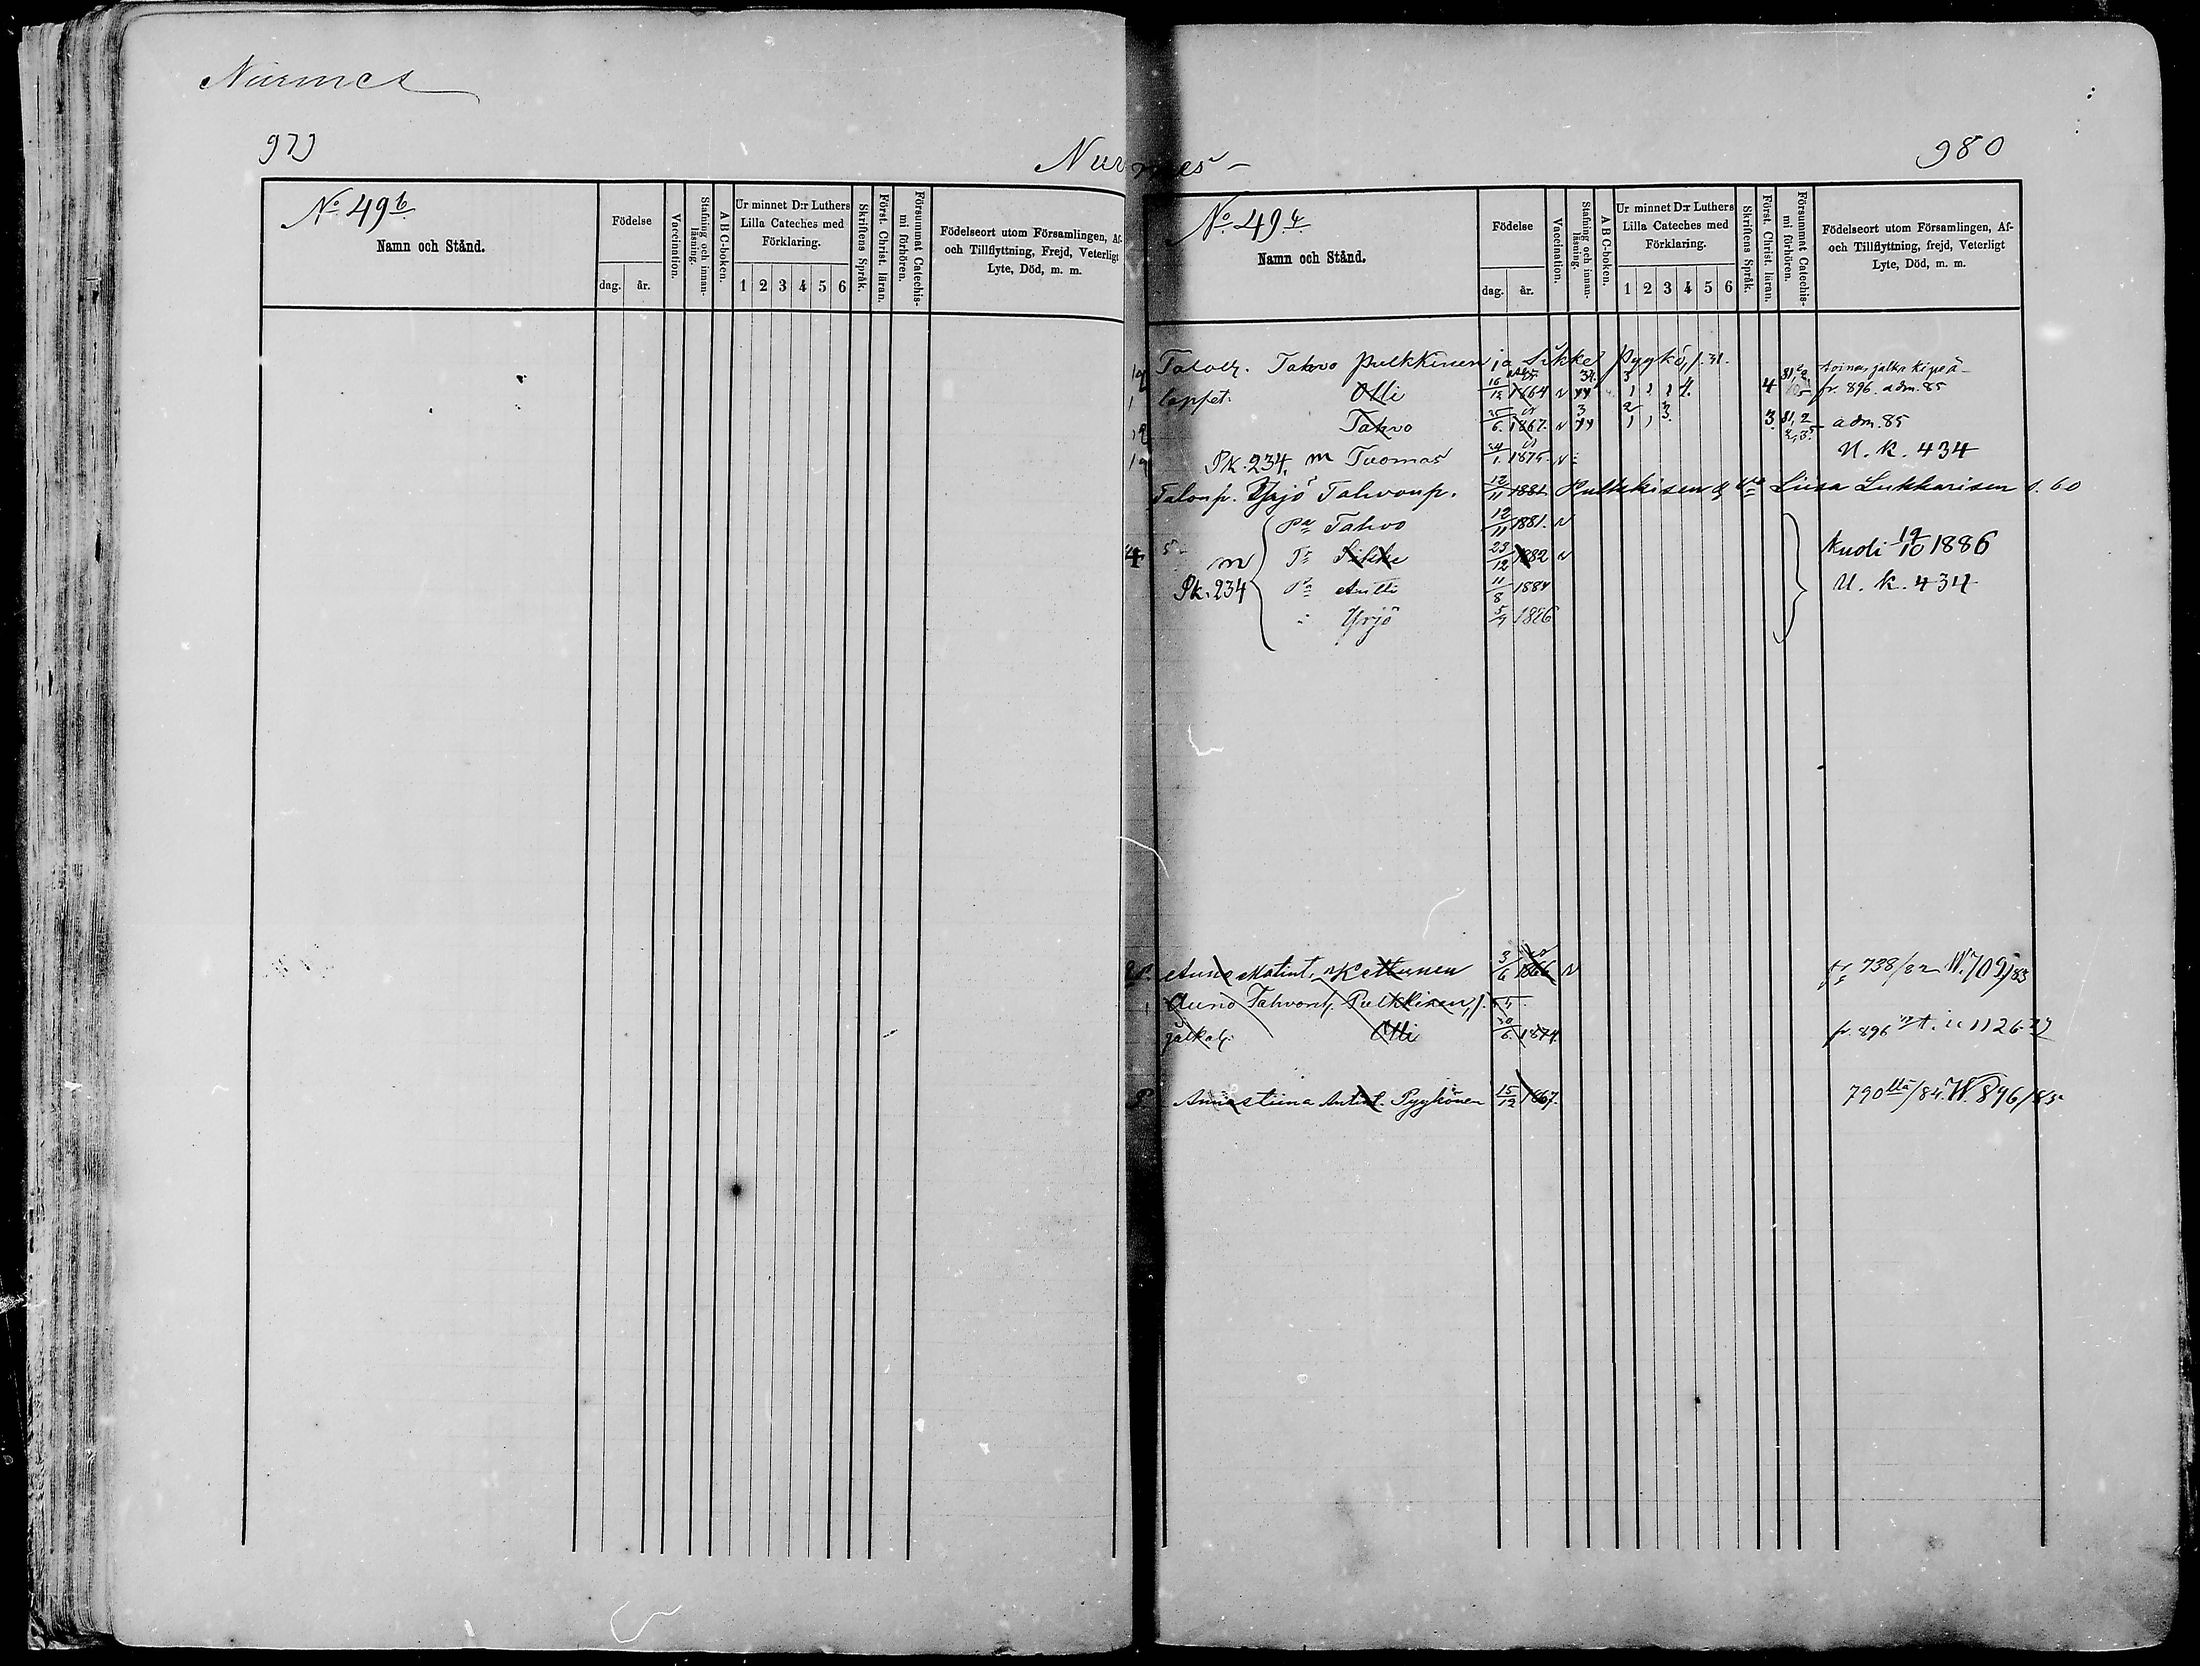 Nurmes
979
Nurmes
980
No 49 b
Namn och Stånd.
Födelse
dag. år.
Vaccination.
Stafning och innan-läsning.
A B C-boken.
Ur minnet D:r Luthers Lilla Cateches med Förklaring.
1 2 3 4 5 6
Skriftens Språk.
Först. Christ. läran.
Försummat Catechis-mi förhören.
Födelseort utom Församlingen, Af- och Tillflyttning, Frejd, Veterligt Lyte, Död, m. m.
No 49
Namn och Stånd.
Födelse
dag. år.
Vaccination.
Stafning och innan-läsning.
A B C-boken.
Ur minnet D:r Luthers Lilla Cateches med Förklaring.
1 2 3 4 5 6
Skriftens Språk.
Först. Christ. läran.
Försummat Catechis-mi förhören.
Födelseort utom Församlingen, Af- och Tillflyttning, frejd, Veterligt Lyte, Död, m. m.
Tahvo Pulkkinen ja Sikke Pyykö, s. 31.
toinen jalka kipeä
lapset. Olli 16/12 1864 fr. 896 adm. 85
Tahvo 6. 1867. adm. 85
Pk. 234. m Tuomas 1. 1875. U. k. 434
Talonp. Yrjö Tahvonp. 12/11 1881 Pulkkisen Liisa Lukkarisen s. 60
Pa Tahvo 12/11 1881.
m Tr Sikke 23/12 1882 kuoli 19/10 1886
Pk. 234 Pa Antti 11/8 1884 U. k. 434
Yrjö 5/7 1886
Anna Matint. Kettunen 3/6 1866 738/82 W. 709/83
Auno Tahvont. Pulkkinen, s.
jalkal. Olli 30/6. 1874. fr. 896
P Annastiina Antint. Pyykönen 15/12 1867. 790 ltä/84. W. 896/85